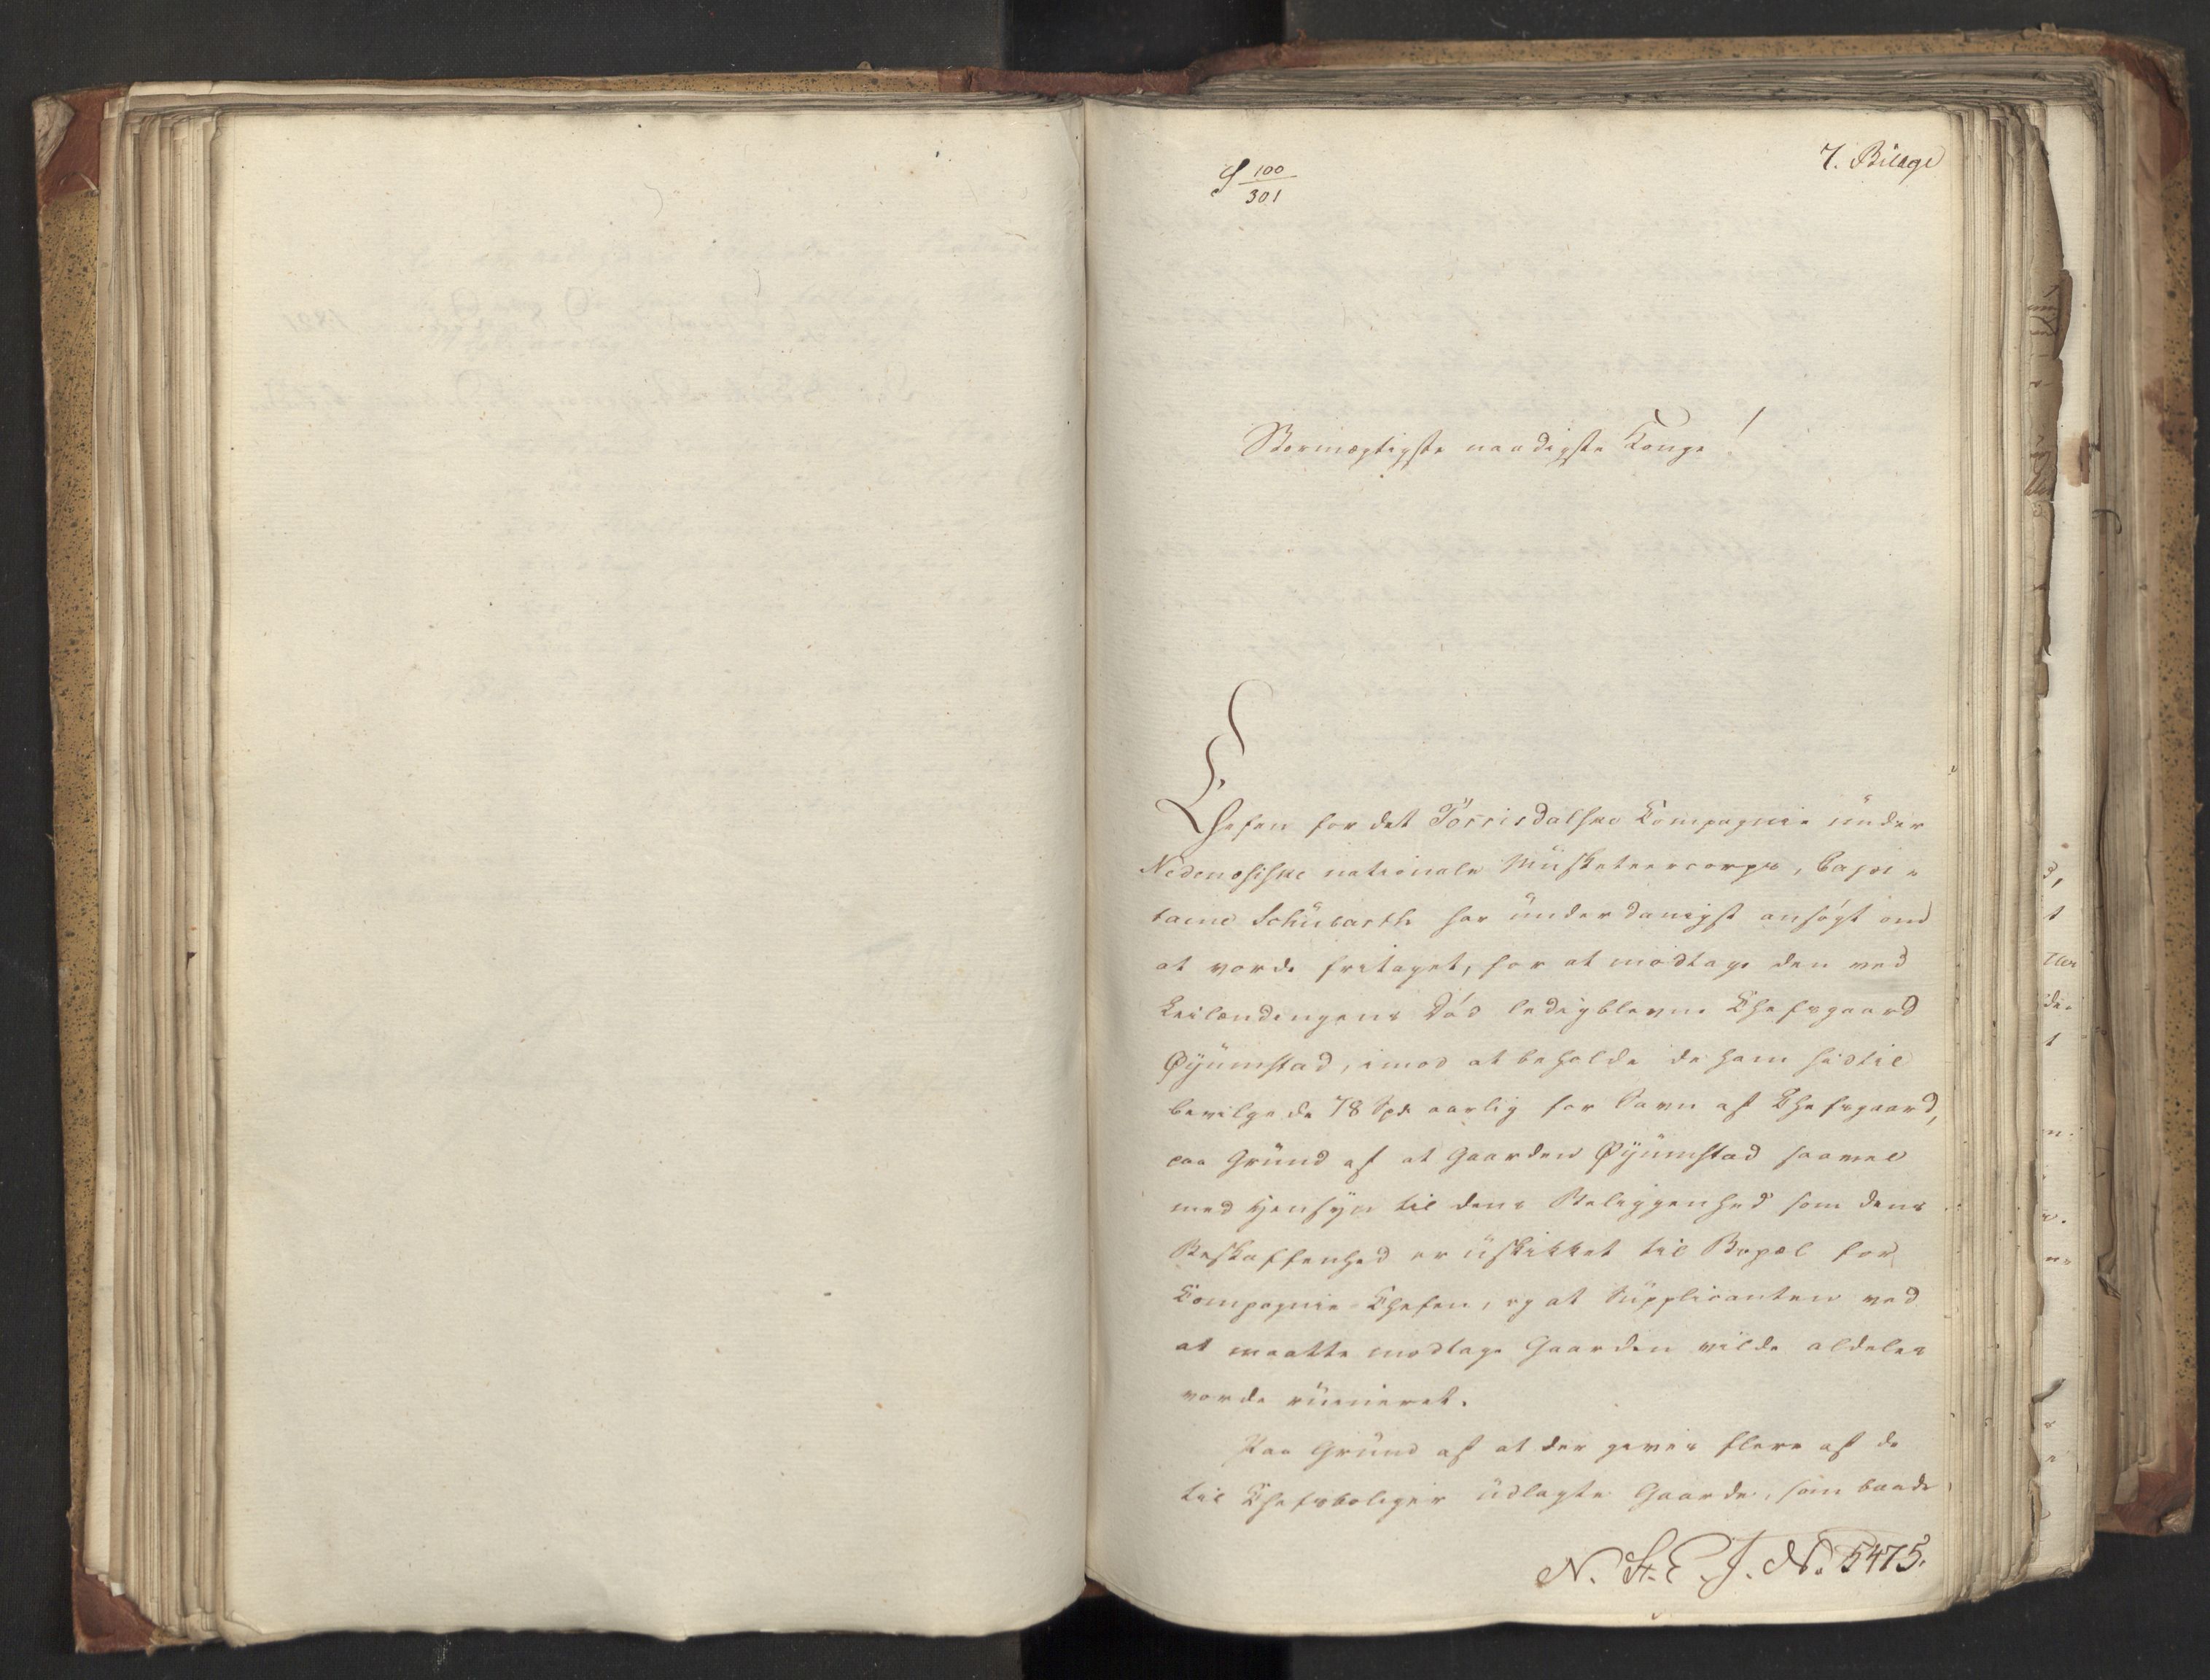 7. Bilage
S 100/301
Stormægtigste naadigste Konge!
Chefen for det Torrisdalske Compagnie under
Nedenæsiske nationale Musketeercorps, Capi-
taine Schubarth har underdanigst ansøgt om
at vorde fritaget, for at modtage den ved
Leilændingens Død ledigblevne Chefsgaard
Øyumstad, imod at beholde de ham hidtil
bevilgede 78 Spd. aarlig for Savn af Chefsgaard,
paa Grund af at Gaarden Øyumstad saavel
med Hensyn til dens Beliggenhed som dens
Beskaffenhed er uskikket til Bopæl for
Compagnie-Chefen, og at Supplicanten ved
at maatte modtage Gaarden vilde aldeles
vorde ruineret.
Paa Grund af at der gives flere af de
til Chefsboliger udlagte Gaarde, som baade
N. St. E. J. N. 5475.